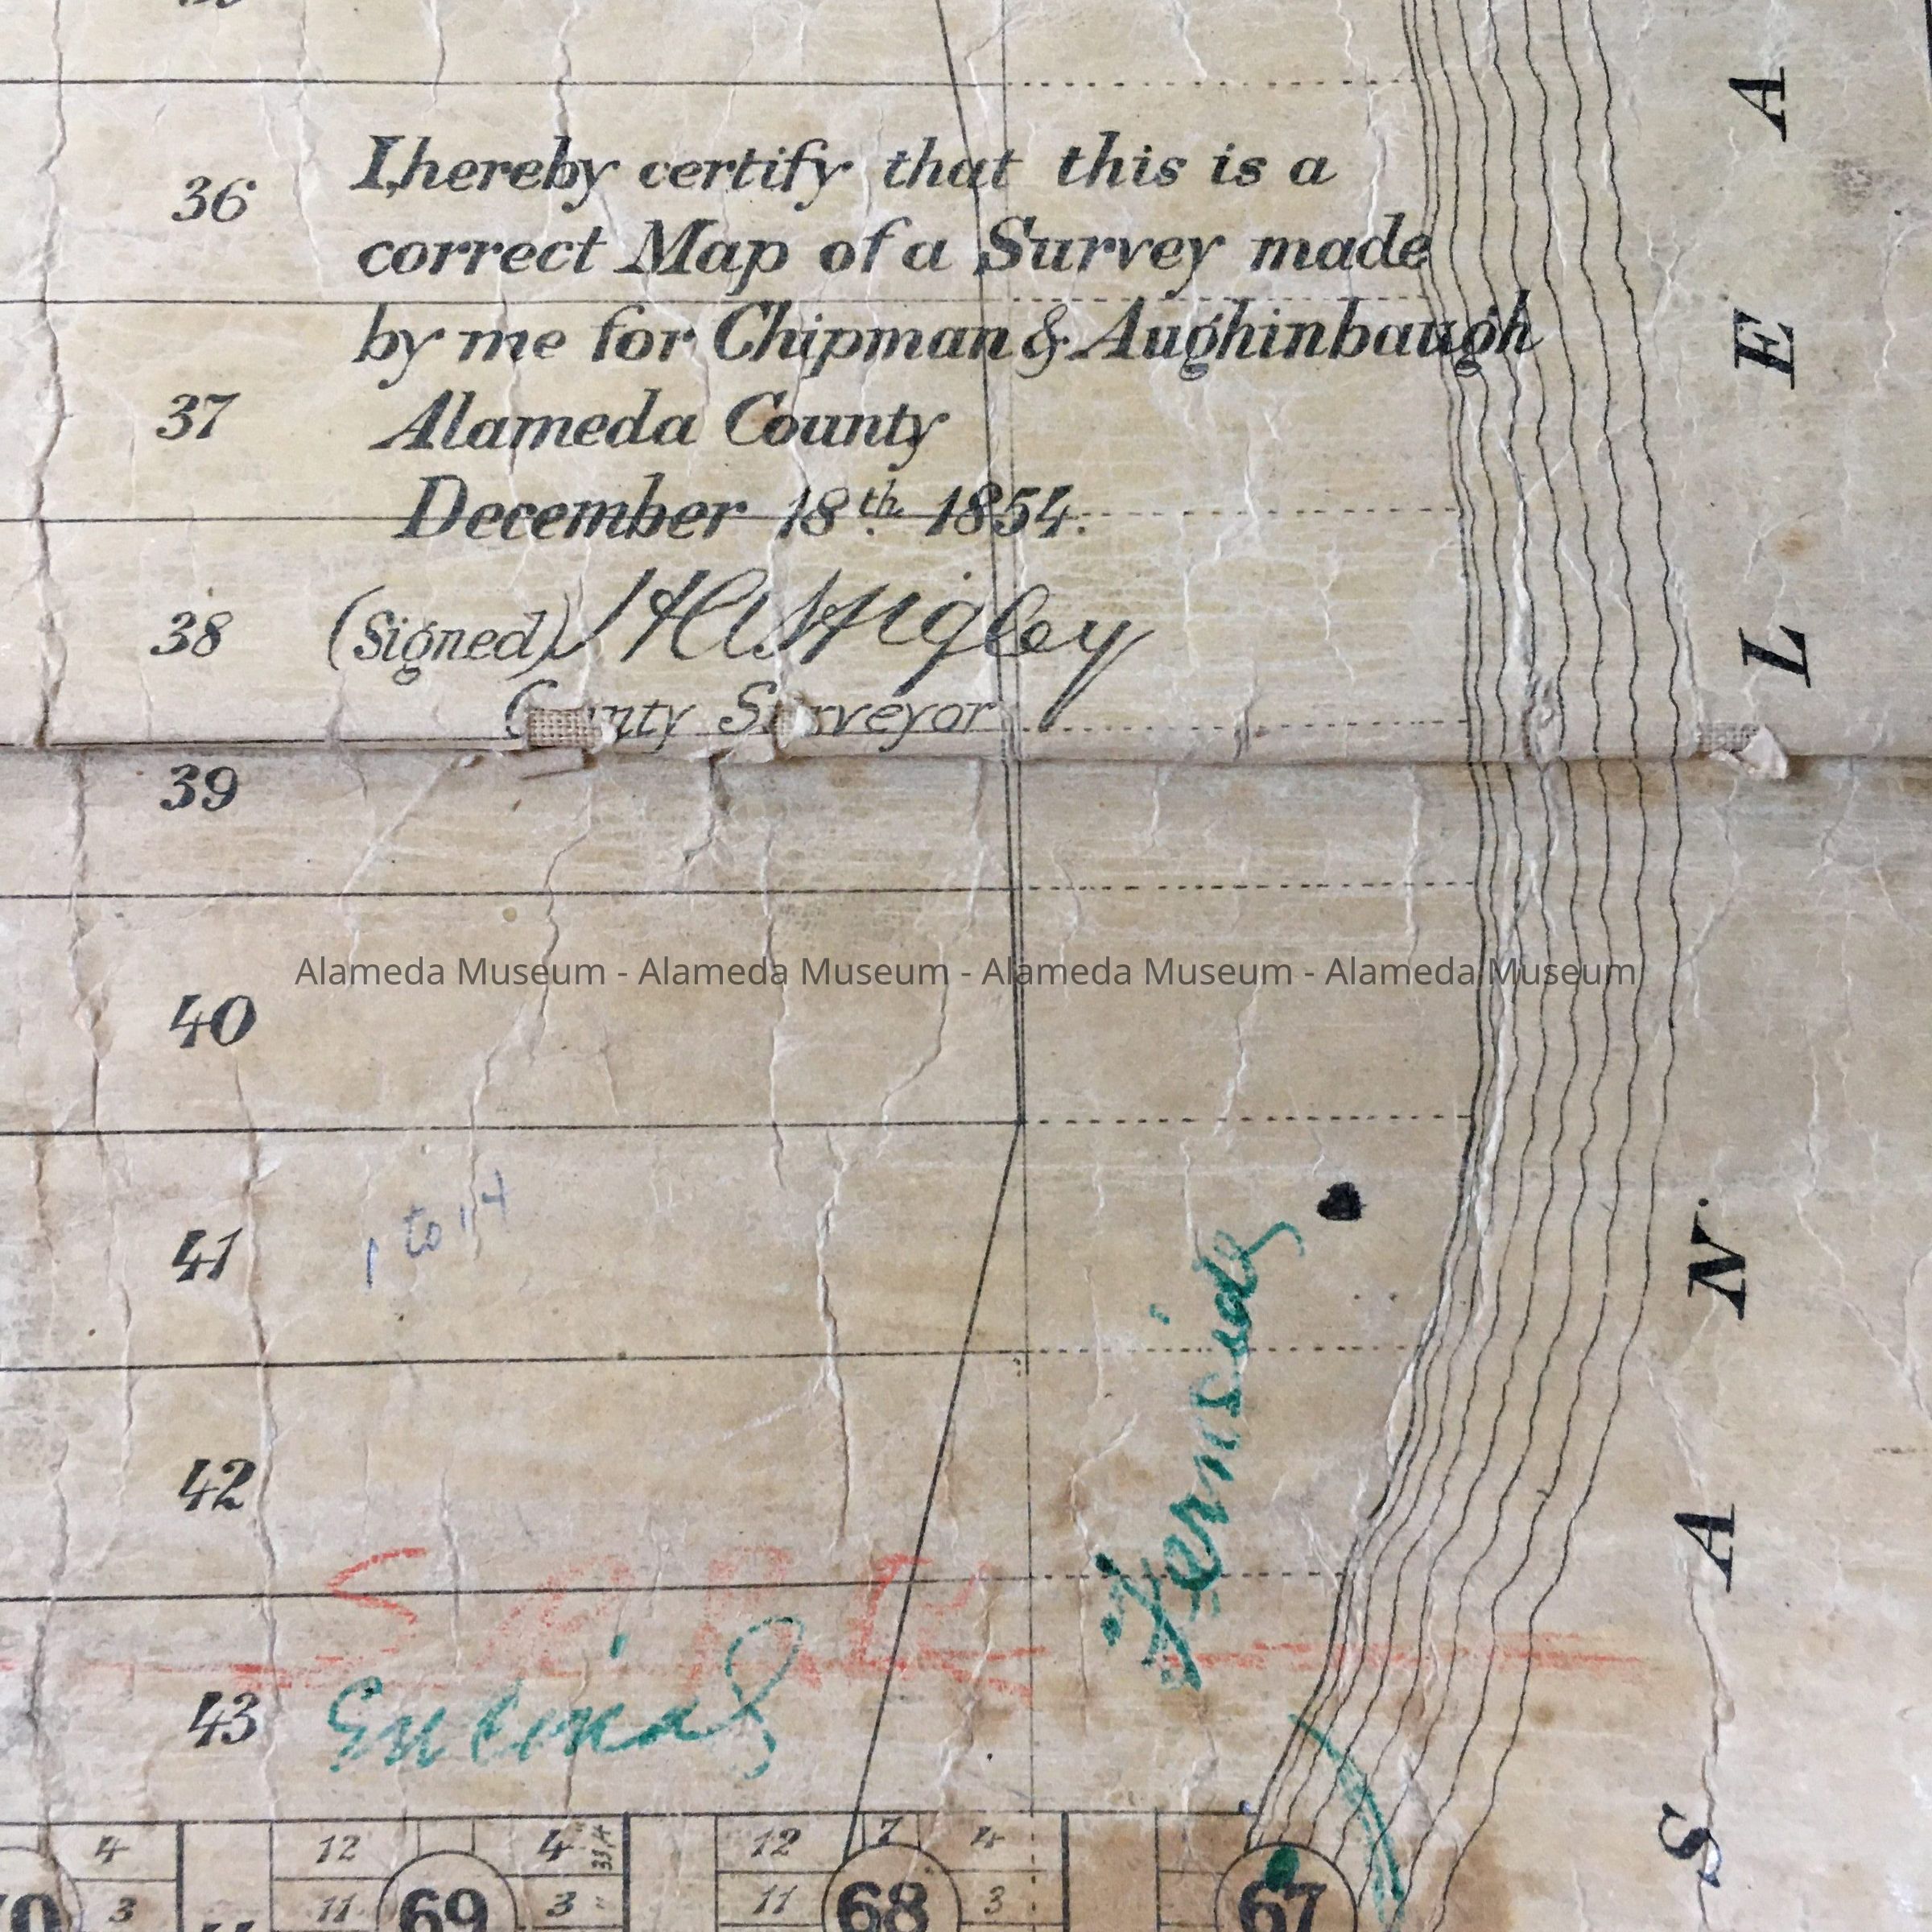 36
I, hereby certify that this is a
correct Map of a Survey made
by me for Chipman & Aughinbaugh
37
Alameda County
December 18th. 1854.
38
(Signed) H A Higley
County Surveyor
39
Alameda Museum - Alameda Museum - Alameda Museum - Alameda Museum
40
41
1 to 14
42
43
Encinal
Fernside
S A N L E A
4 12 4 33,4 12 7 4
3 11 3 " 11 3
69 68 67